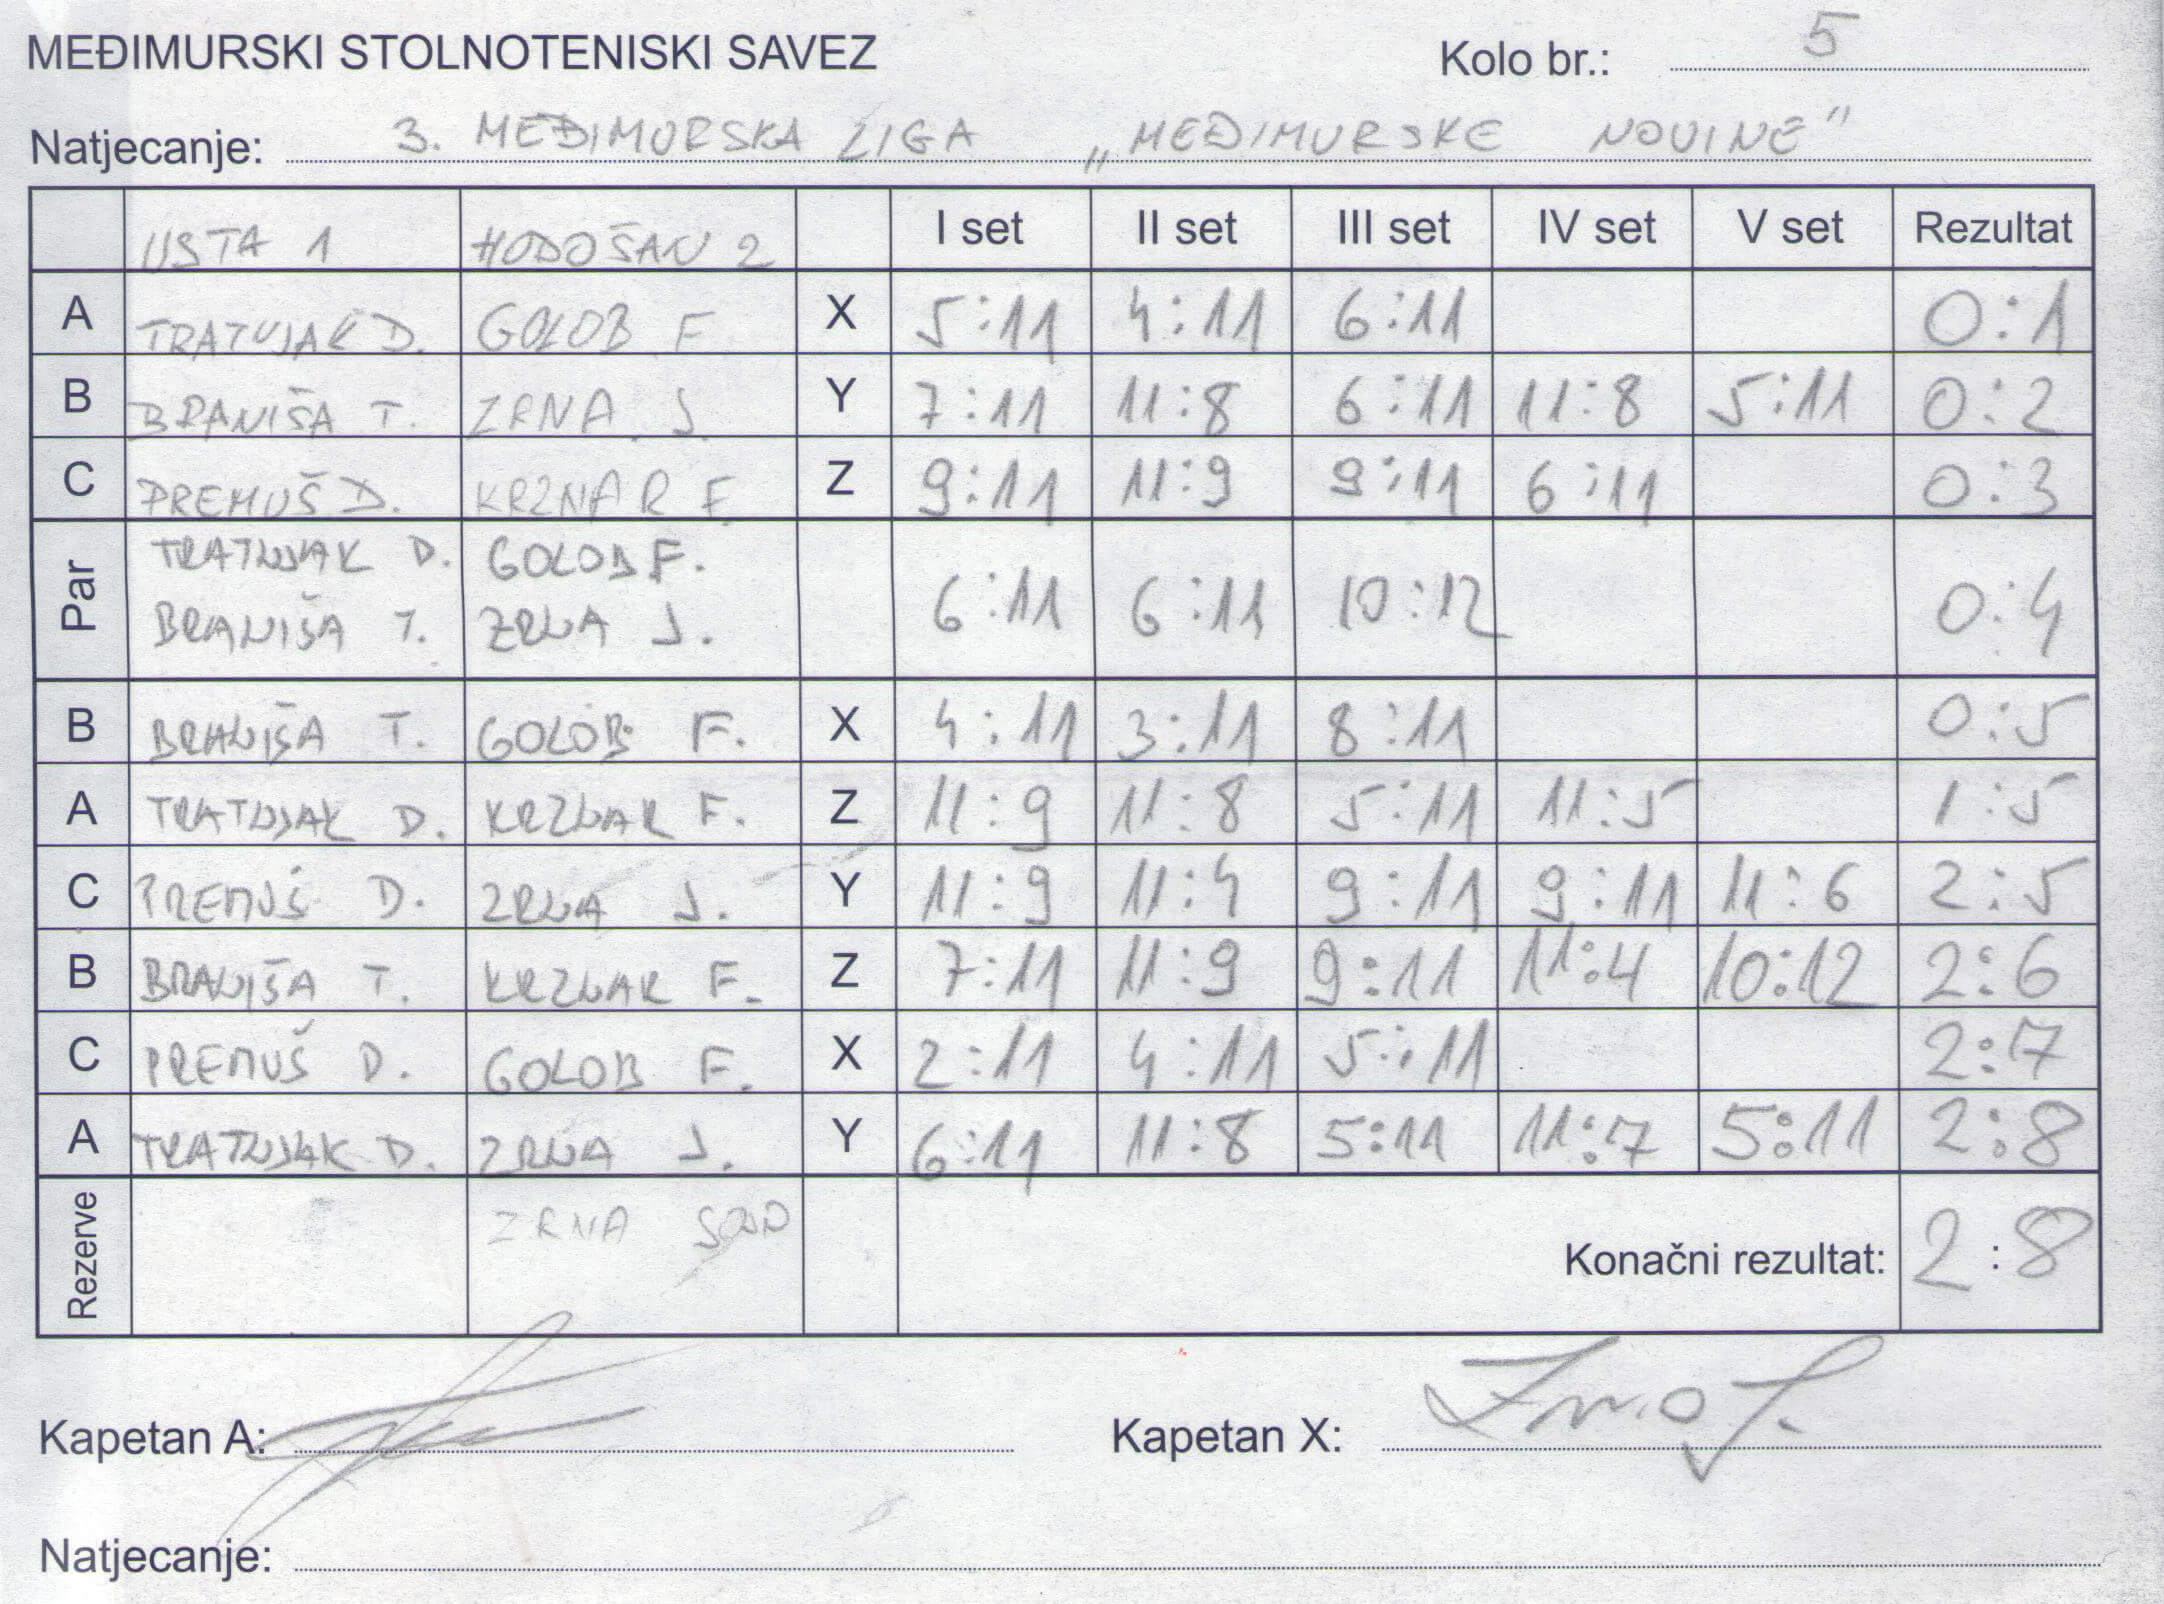 MEĐIMURSKI STOLNOTENISKI SAVEZ Kolo br.: 5
Natjecanje: 3. MEĐIMURSKA LIGA „MEĐIMURSKE NOVINE”
USTA 1 HODOŠAN 2 I set II set III set IV set V set Rezultat
A TRATNJAK D. GOLOB F. X 5:11 4:11 6:11 0:1
B BRANIŠA T. ZRNA J. Y 7:11 11:8 6:11 11:8 5:11 0:2
C PREMUŠ D. KRZNAR F. Z 9:11 11:9 9:11 6:11 0:3
Par TRATNJAK D. GOLOB F. 6:11 6:11 10:12 0:4
BRANIŠA T. ZRNA J.
B BRANIŠA T. GOLOB F. X 4:11 3:11 8:11 0:5
A TRATNJAK D. KRZNAR F. Z 11:9 11:8 5:11 11:5 1:5
C PREMUŠ D. ZRNA J. Y 11:9 11:4 9:11 9:11 11:6 2:5
B BRANIŠA T. KRZNAR F. Z 7:11 11:9 9:11 11:4 10:12 2:6
C PREMUŠ D. GOLOB F. X 2:11 4:11 5:11 2:7
A TRATNJAK D. ZRNA J. Y 6:11 11:8 5:11 11:7 5:11 2:8
Rezerve ZRNA Konačni rezultat: 2:8
Kapetan A: Kapetan X:
Natjecanje: